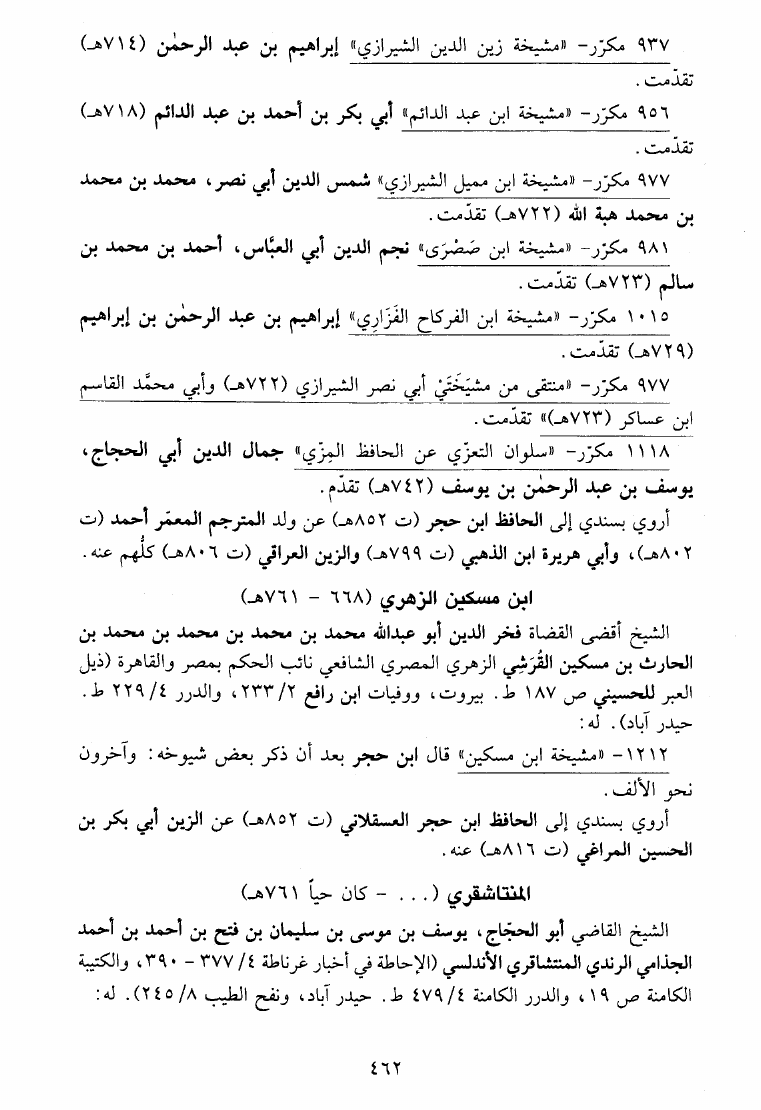 ٩٣٧ مكرّر- «مشيخة زين الدين الشيرازي» إبراهيم بن عبد الرحمٰن (٧١٤هـ)
تقدّمت.
٩٥٦ مكرّر- «مشيخة ابن عبد الدائم» أبي بكر بن أحمد بن عبد الدائم (٧١٨هـ)
تقدّمت.
٩٧٧ مكرّر- «مشيخة ابن مميل الشيرازي» شمس الدين أبي نصر، محمد بن محمد
بن محمد هبة الله (٧٢٢هـ) تقدّمت.
٩٨١ مكرّر- «مشيخة ابن صَصْرَى» نجم الدين أبي العبَّاس، أحمد بن محمد بن
سالم (٧٢٣هـ) تقدّمت.
١٠١٥ مكرّر- «مشيخة ابن الفركاح الفَزَارِي» إبراهيم بن عبد الرحمٰن بن إبراهيم
(٧٢٩هـ) تقدّمت.
٩٧٧ مكرّر- «منتقى من مشيَخَتَيْ أبي نصر الشيرازي (٧٢٢هـ) وأبي محمَّد القاسم
ابن عساكر (٧٢٣هـ)» تقدّمت.
١١١٨ مكرّر- «سلوان التعزّي عن الحافظ المِزّي» جمال الدين أبي الحجاج،
يوسف بن عبد الرحمٰن بن يوسف (٧٤٢هـ) تقدّم.
أروي بسندي إلى الحافظ ابن حجر (ت ٨٥٢هـ) عن ولد المترجم المعمّر أحمد (ت
٨٠٢هـ)، وأبي هريرة ابن الذهبي (ت ٧٩٩هـ) والزين العراقي (ت ٨٠٦هـ) كلُّهم عنه.
ابن مسكين الزهري (٦٦٨ - ٧٦١هـ)
الشيخ أقضى القضاة فخر الدين أبو عبدالله محمد بن محمد بن محمد بن محمد بن
الحارث بن مسكين القُرَشِي الزهري المصري الشافعي نائب الحكم بمصر والقاهرة (ذيل
العبر للحسيني ص ١٨٧ ط. بيروت، ووفيات ابن رافع ٢/ ٢٣٣، والدرر ٤/ ٢٢٩ ط.
حيدر آباد). له:
١٢١٢- «مشيخة ابن مسكين» قال ابن حجر بعد أن ذكر بعض شيوخه: وآخرون
نحو الألف.
أروي بسندي إلى الحافظ ابن حجر العسقلاني (ت ٨٥٢هـ) عن الزين أبي بكر بن
الحسين المراغي (ت ٨١٦هـ) عنه.
المنتاشقري (... - كان حياً ٧٦١هـ)
الشيخ القاضي أبو الحجّاج، يوسف بن موسى بن سليمان بن فتح بن أحمد بن أحمد
الجذامي الرندي المنتشاقري الأندلسي (الإحاطة في أخبار غرناطة ٤/ ٣٧٧ - ٣٩٠، والكتيبة
الكامنة ص ١٩، والدرر الكامنة ٤/ ٤٧٩ ط. حيدر آباد، ونفح الطيب ٨/ ٢٤٥). له:
٤٦٢